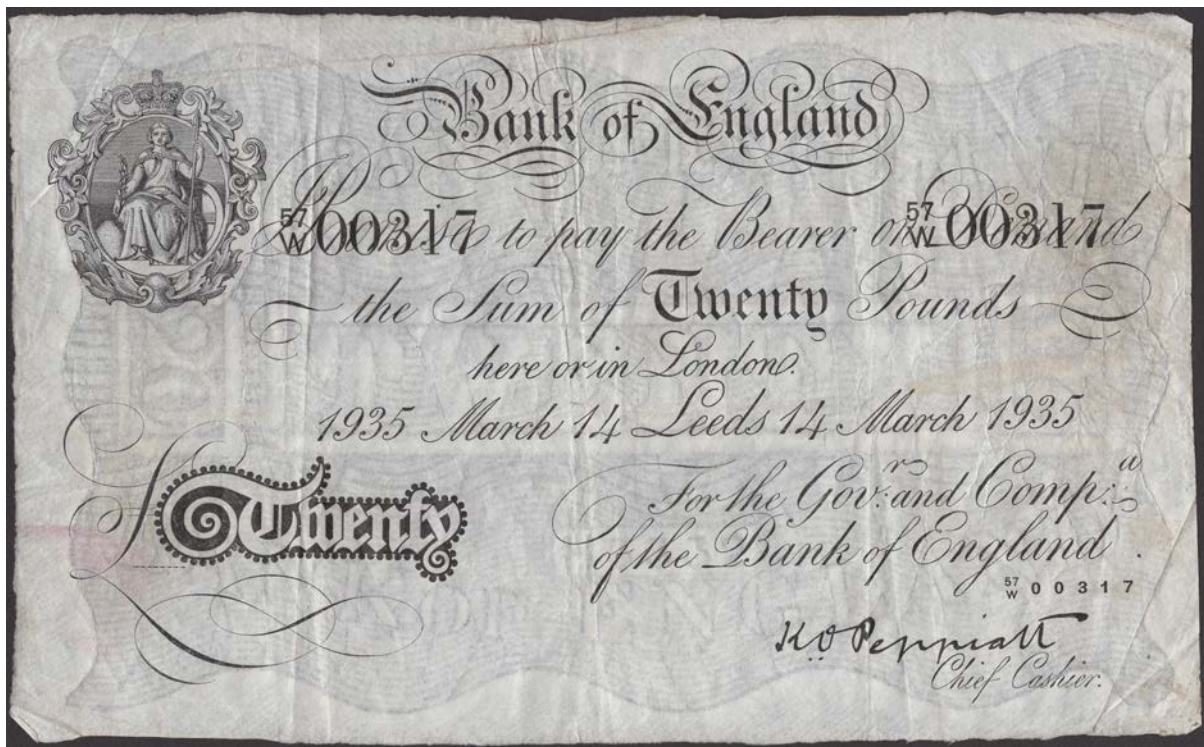 Bank of England
57/W 00317 57/W 00317
I Promise to pay the Bearer on Demand
the Sum of Twenty Pounds
here or in London.
1935 March 14 Leeds 14 March 1935
For the Gov:r and Comp:a
£Twenty
of the Bank of England.
57/W 00317
K.O. Peppiatt
Chief Cashier.